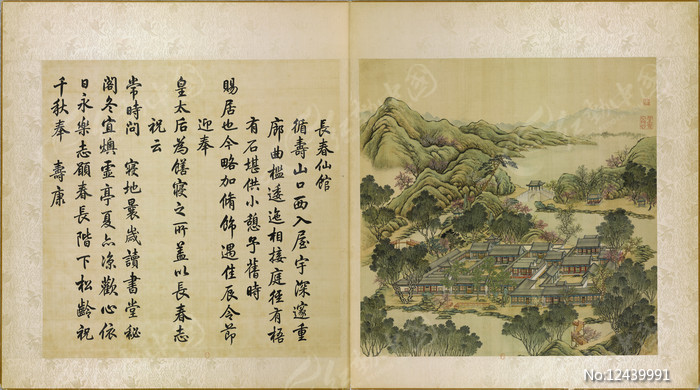 長春仙館
循壽山口西入屋宇深邃重
廊曲檻逶迤相接庭徑有梧
有石堪供小憩予舊時
賜居也今略加脩飾遇佳辰令節
迎奉
皇太后為饍寢之所蓋以長春志
祝云
常時問寢地曩歲讀書堂秘
閣冬宜燠靈亭夏亦涼歡心依
日永樂志願春長階下松齡祝
千秋奉壽康
No:12439991